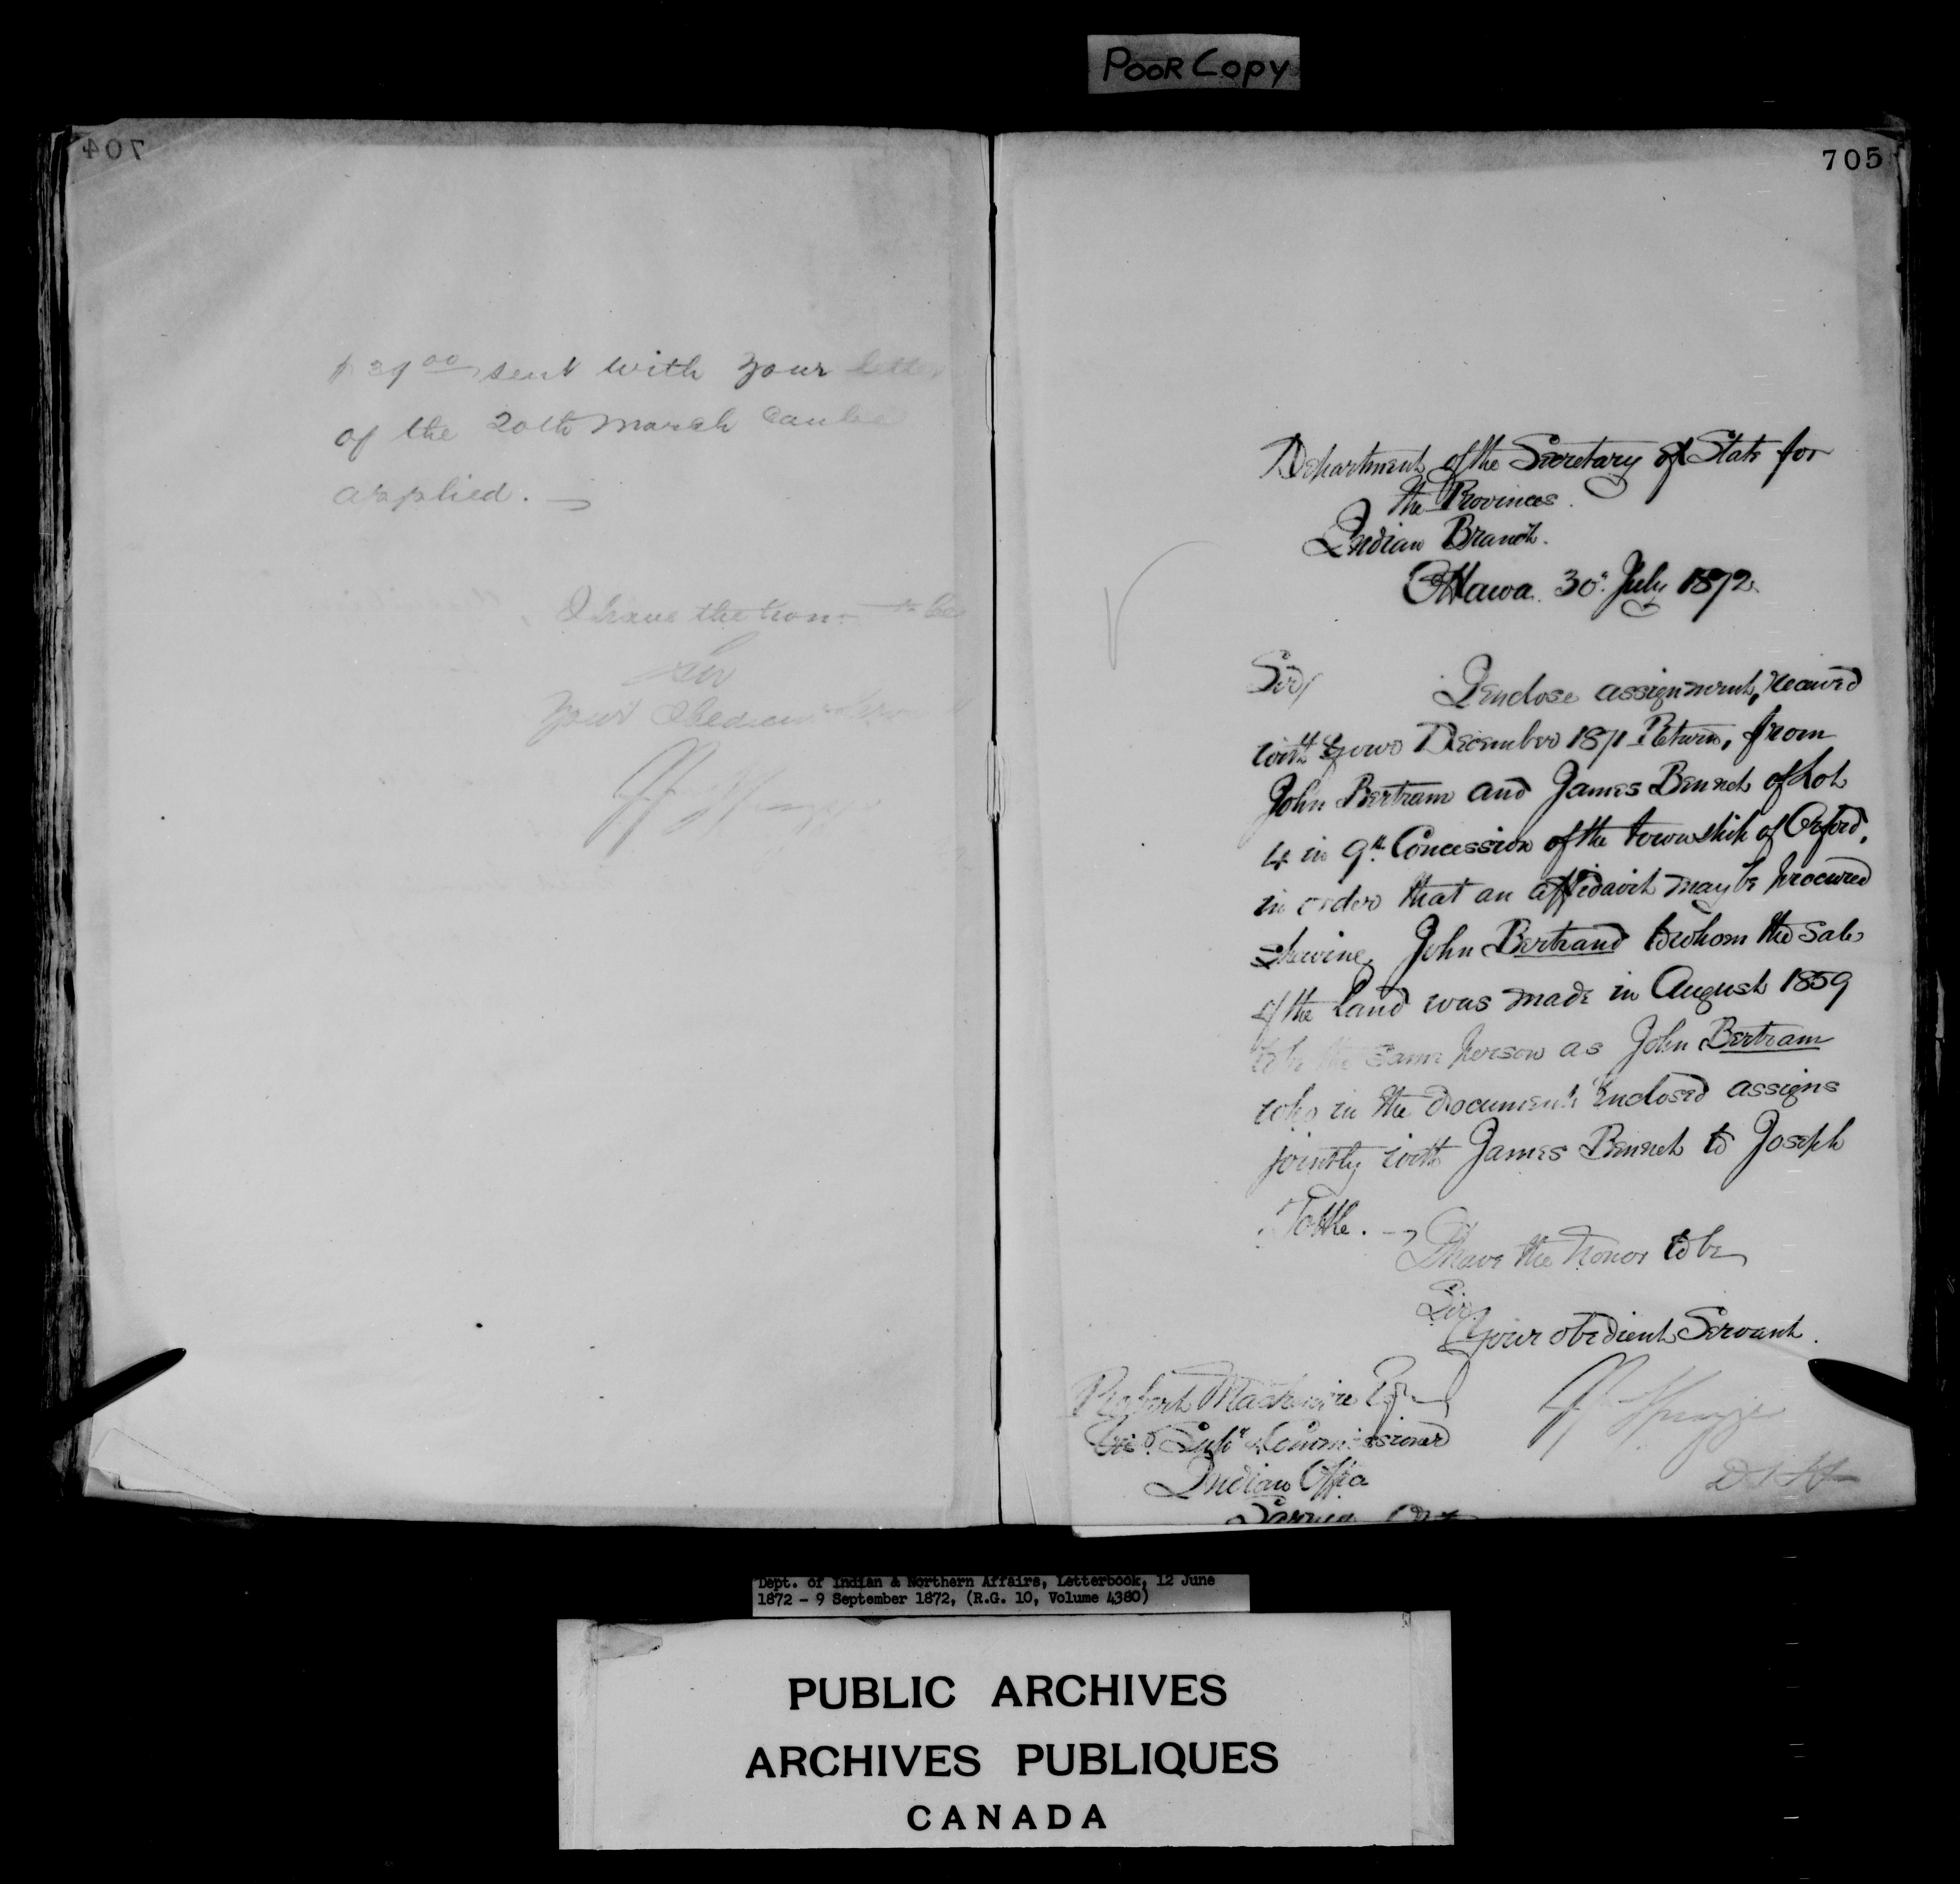 POOR COPY
704
$39 00 sent with your letter
of the 20th March can be
applied.
I have the honor to be
Sir
Your Obedient Servant
705
Department of the Secretary of State for
the Provinces.
Indian Branch.
Ottawa. 30th July 1872.
Sir,
I enclose assignment, received
with your December 1871 Return, from
John Bertram and James Bennet of Lot
4 in 9th Concession of the township of Orford,
in order that an affidavit may be procured
shewing John Bertrand to whom the sale
of the Land was made in August 1859
to be the same person as John Bertram
who in the document enclosed assigns
jointly with James Bennet to Joseph
I have the honor to be
Sir
Your obedient Servant.
Robert Mackenzie Esq
Supt Commissioner
Indian Office
Sarnia Ont
Dept. of Indian & Northern Affairs, Letterbook, 12 June
1872 - 9 September 1872, (R.G. 10, Volume 4380)
PUBLIC ARCHIVES
ARCHIVES PUBLIQUES
CANADA